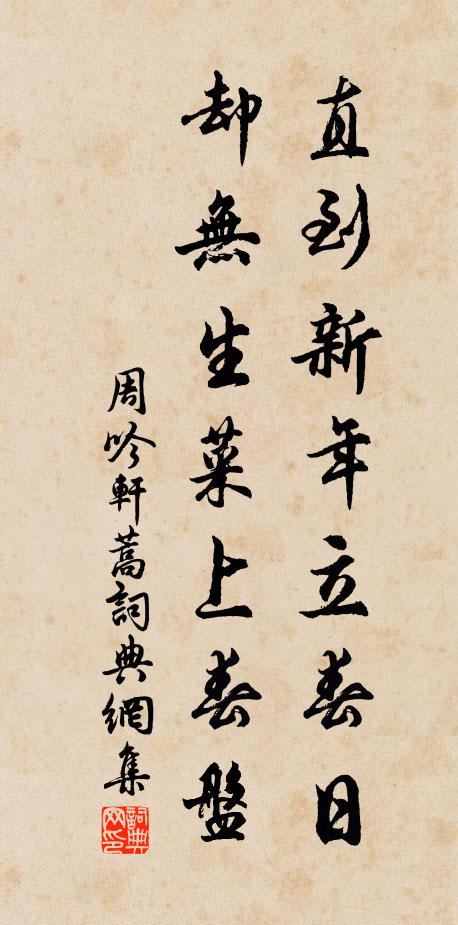 直到新年立春日
却無生菜上春盤
周吟軒蒿詞典網集
詞典網印